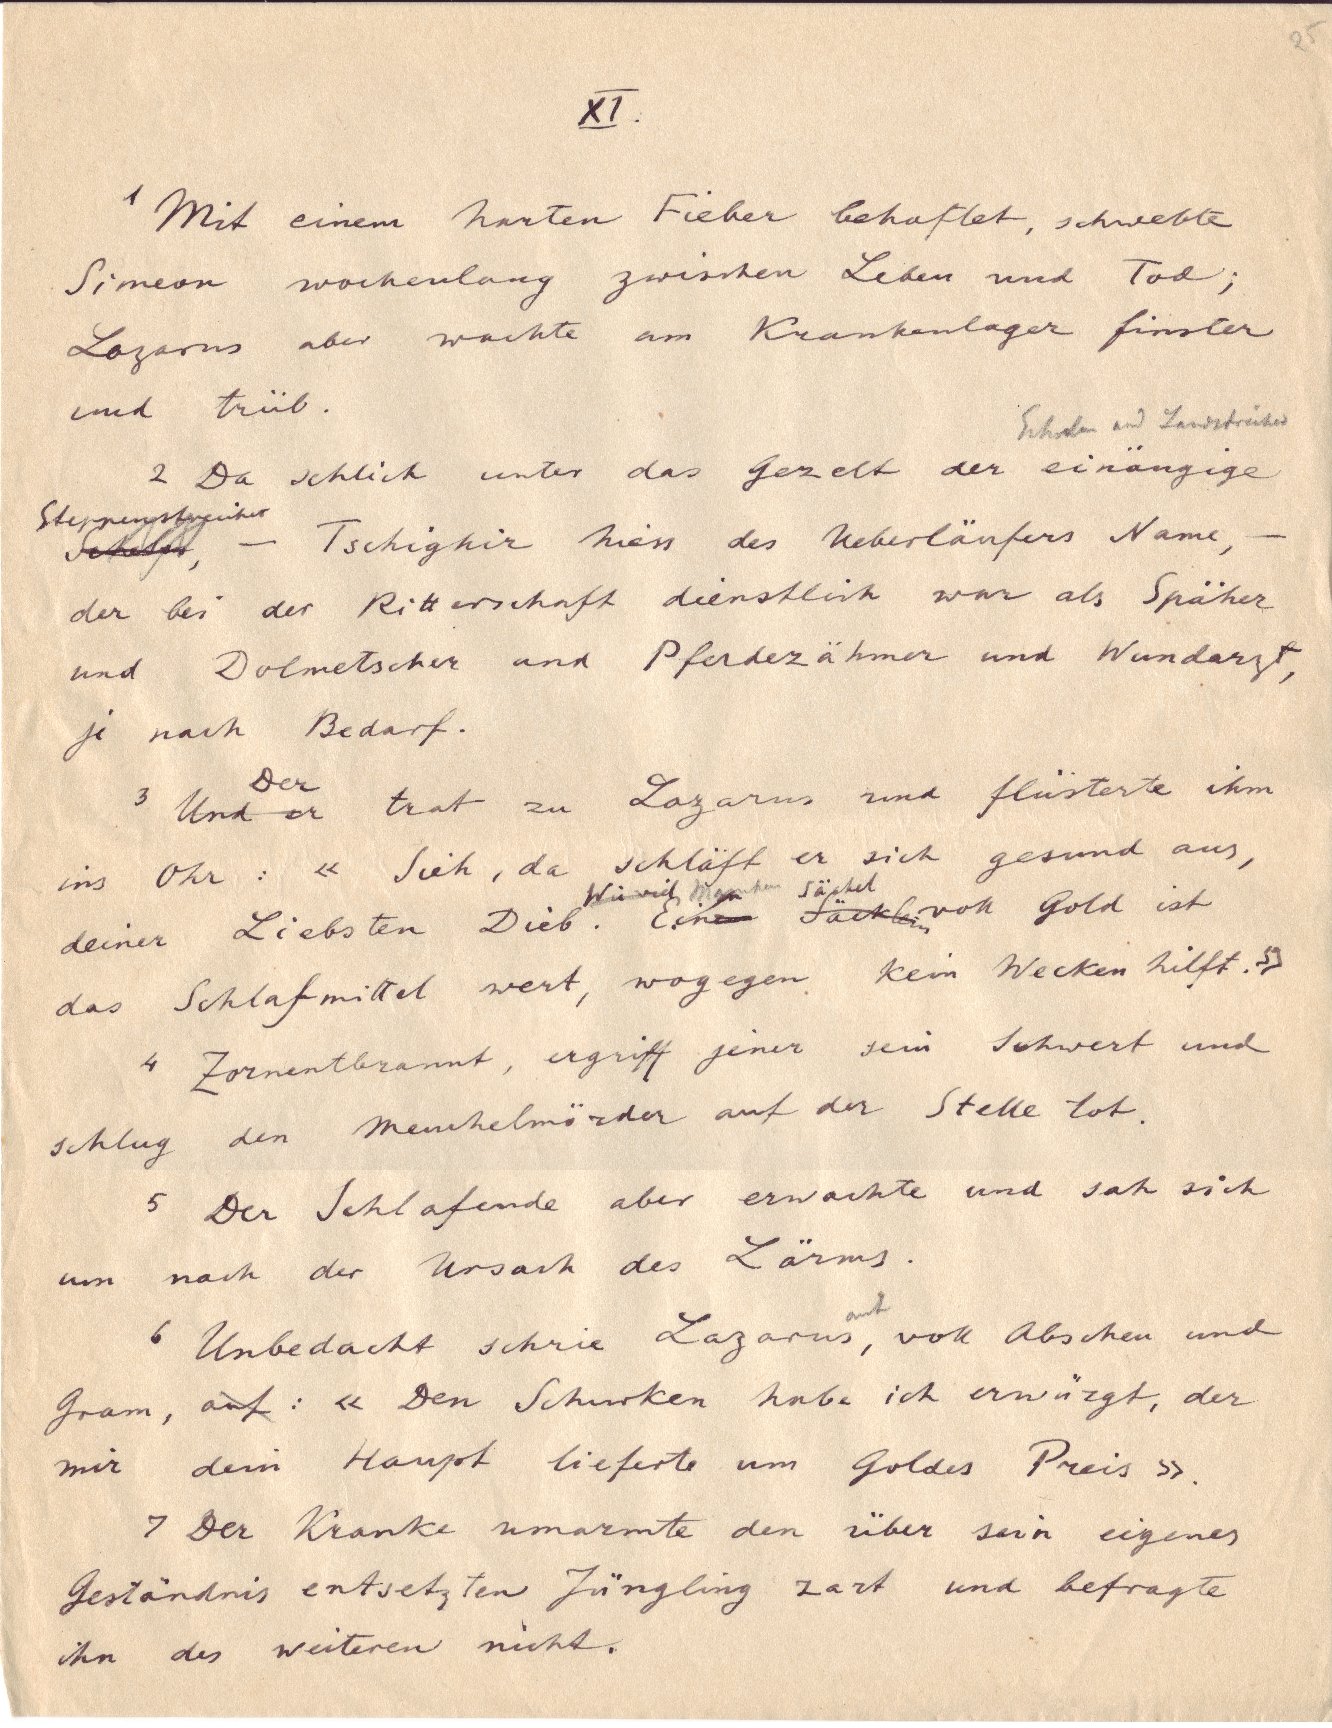 25
XI.
1 Mit einem harten Fieber behaftet, schwebte
Simeon wochenlang zwischen Leben und Tod;
Lazarus aber wachte am Krankenlager finster
und trüb.
und Landstreicher
2 Da schlich unter das Gezelt der einäugige
Steppenstreicher
Schelm, — Tschighir hiess des Ueberläufers Name, —
der bei der Ritterschaft dienstlich war als Späher
und Dolmetscher und Pferdezähmer und Wundarzt,
je nach Bedarf.
Der
3 Und er trat zu Lazarus und flüsterte ihm
ins Ohr : « Sieh, da schläft er sich gesund aus,
Wie viel Manchen Säckel
deiner Liebsten Dieb. Ein Säcklein voll Gold ist
das Schlafmittel wert, wogegen kein Wecken hilft.»
4 Zornentbrannt, ergriff jener sein Schwert und
schlug den Meuchelmörder auf der Stelle tot.
5 Der Schlafende aber erwachte und sah sich
um nach der Ursach des Lärms.
auf
6 Unbedacht schrie Lazarus, voll Abscheu und
Gram, auf : « Den Schurken habe ich erwürgt, der
mir dein Haupt lieferte um Goldes Preis ».
7 Der Kranke umarmte den über sein eigenes
Geständnis entsetzten Jüngling zart und befragte
ihn des weiteren nicht.